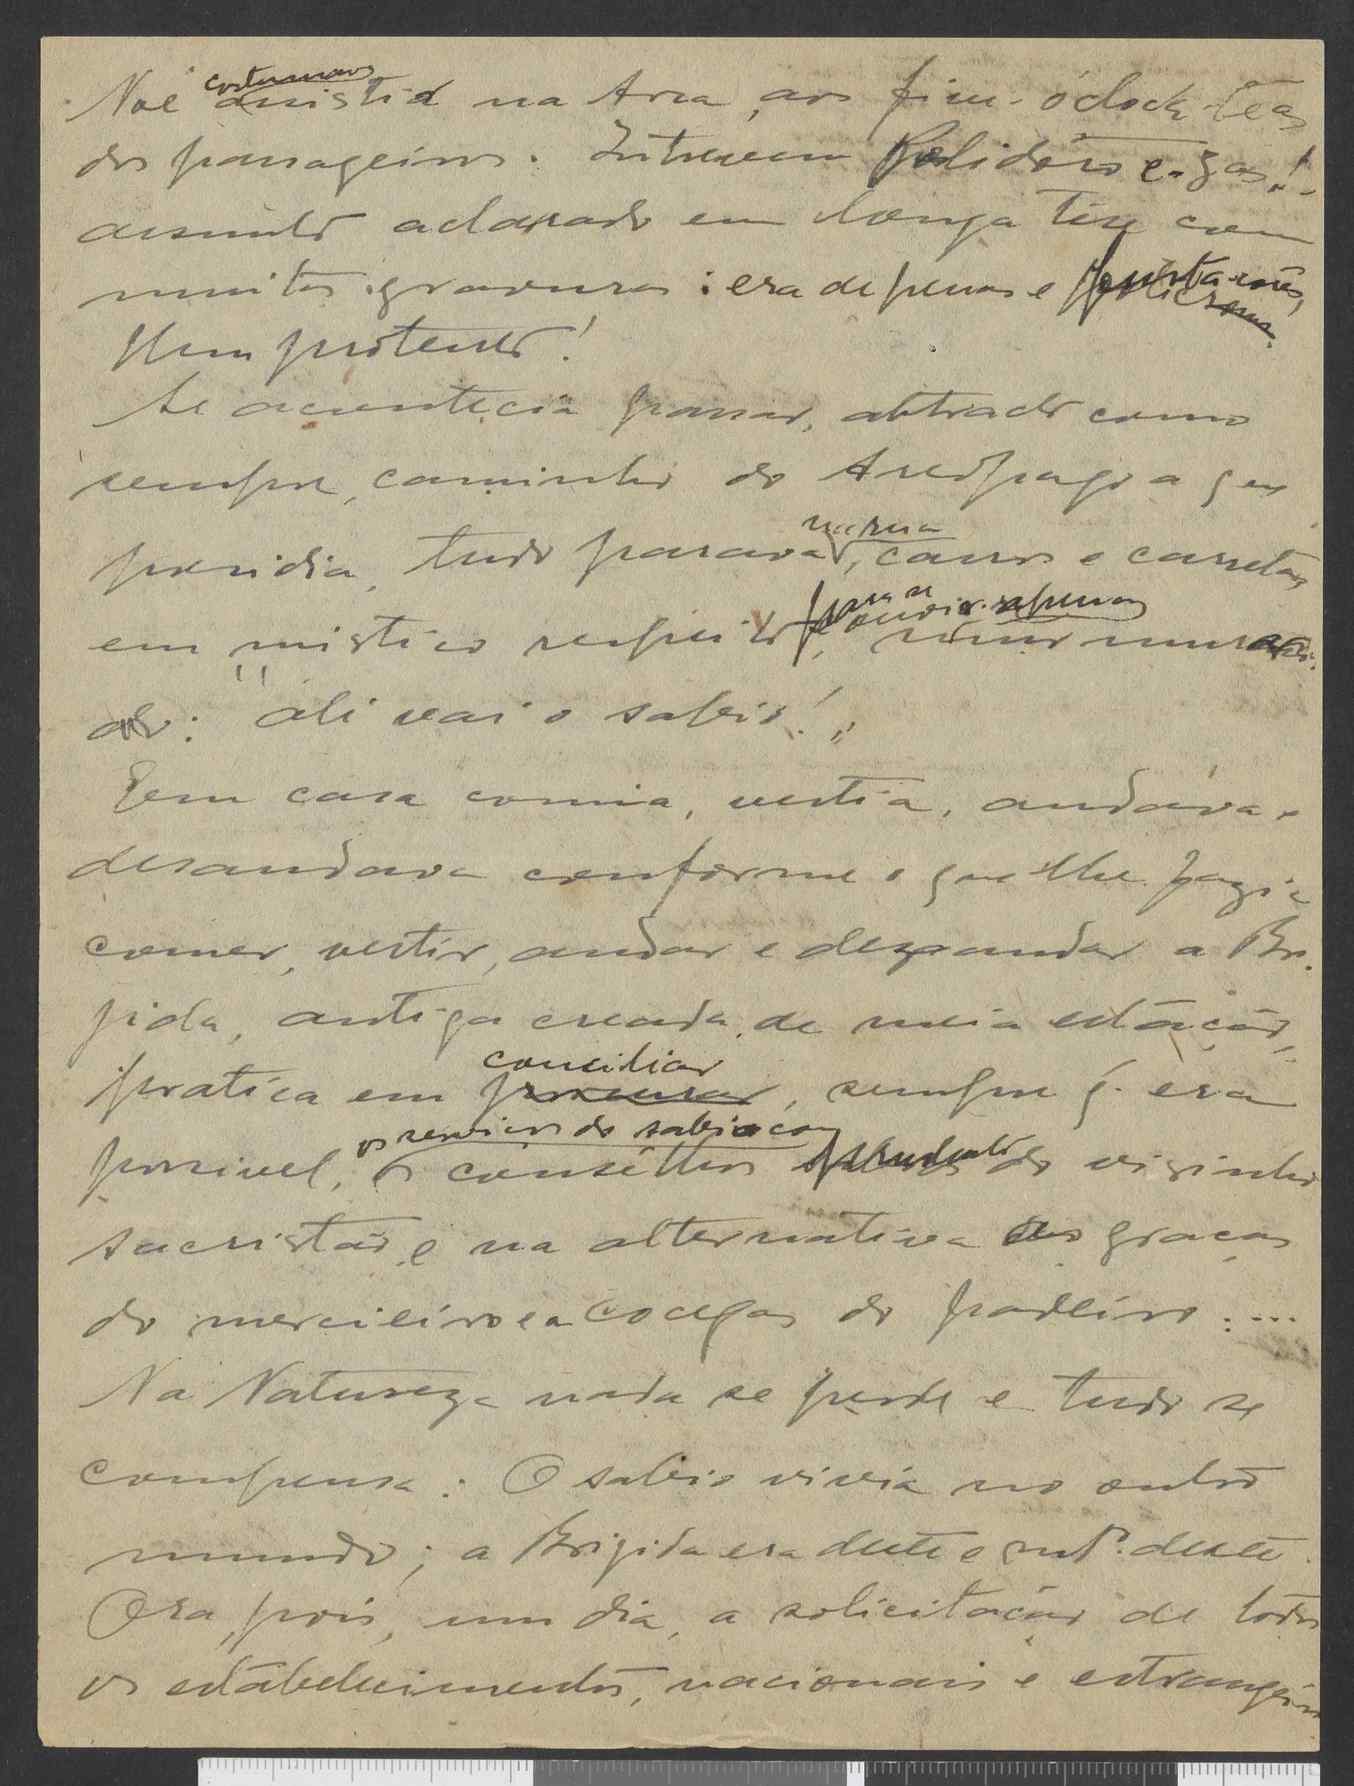 Noé costumava assistir na Arca, aos five-o'clock-teas
dos passageiros. Intervem Polidoro e-zas!-
assunto aclarado em longa tése com
muitas gravuras: era de penas e
Nem protestos!
Se acontecia passar, abtrado como
sempre, caminho do Areópago a que
presidia, tudo parava na rua, carros e carretas
em mistico respeito para se ouvir apenas,
do: "ali vai o sabio!"
Em casa comia, vestia, andava e
desandava conforme o que lhe fazia
comer, vestir, andar e desandar a Bri-
gida, antiga creada, de meia estação,
pratica em conciliar, sempre q. era
possivel, os serviços do sabio com os conselhos do visinho
sacristão e na alternativa as graças
do merceeiro e a cocegas do padeiro....
Na Natureza nada se perde e tudo se
compensa: O sabio vivia no outro
mundo; a Brigida era deste e mtº. deste.
Ora, pois, um dia, a solicitação de todos
os estabelecimentos, nacionais e estrangeiros